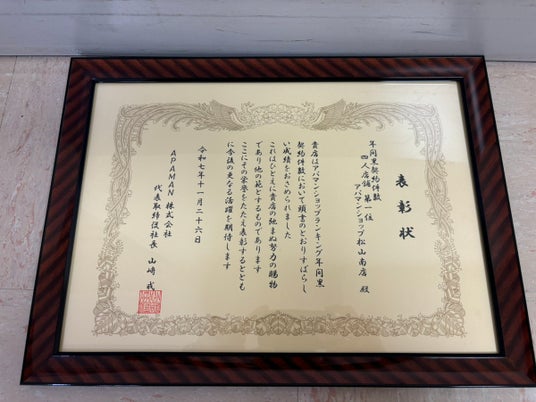 表彰状
年間累契約件数
四人店舗 第一位
アパマンショップ松山南店 殿
貴店はアパマンショップランキング年間累
契約件数において頭書のとおりすばらし
い成績をおさめられました
これはひとえに貴店の弛まぬ努力の賜物
であり他の範とするものであります
ここにその栄誉をたたえ表彰するとともに
に今後の更なる活躍を期待します
令和七年十一月二十六日
APAMAN株式会社
代表取締役社長 山﨑 戒